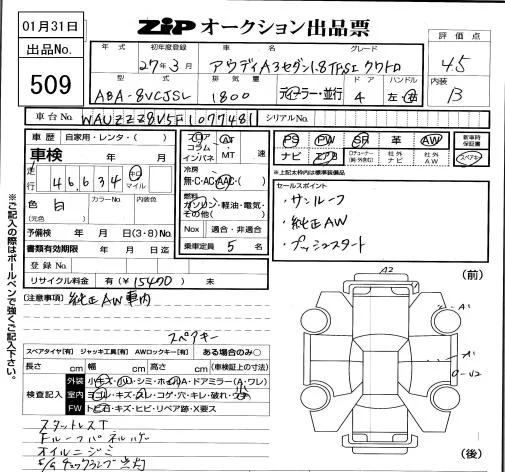 01月31日
出品No.
509
ZIP オークション出品票
年式 初年度登録 車名 グレード
27年3月 アウディA3セダン1.8TFSI クワトロ
型式 排気量 ドア ハンドル
ABA-8VCJSL 1800 ディーラー・並行 4 左・右
評価点
4.5
内装
B
車台No. WAUZZZ8V5F1077481 シリアルNo.
車歴 自家用・レンタ・( )
車検 年 月
走行 46,634 キロ マイル
色 白 カラーNo. 内装色
(元色)
予備検 年 月 日(3・8)No.
書類有効期限 年 月 日迄
登録No.
リサイクル料金 有(¥15400) 未
フロア コラム インパネ AT MT 速
冷房
無・C・AC・AAC・( )
燃料
ガソリン・軽油・電気・
その他( )
Nox 適合・非適合
乗車定員 5 名
PS PW SR 革 AW
ナビ エアB 社外ナビ 社外AW
新車時保証書
スペアキー
※上記太枠内は標準装備品
セールスポイント
・サンルーフ
・純正AW
・プッシュスタート
※ご記入の際はボールペンで強くご記入下さい。
[注意事項] 純正AW車内
スペアキー
スペアタイヤ[有] ジャッキ工具[有] AWロックキー[有] ある場合のみ○
長さ cm 幅 cm 高さ cm (車検証上の寸法)
検査記入
外装 小キズ・小凹・シミ・ホイルA・ドアミラー(A・ワレ)
室内 ヨゴレ・キズ・スレ・コゲ・穴・キレ・破れ
FW トビ石・キズ・ヒビ・リペア跡・X要ス
スタットレスT
Fルーフパネルハゲ
オイルニジミ
E/Gチェックランプ点灯
(前)
A2
A1
A1
(後)